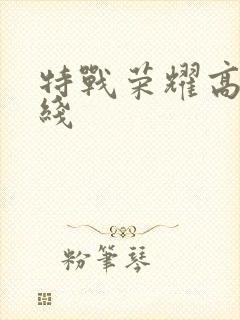 特戰荣耀高
綫
粉筆琴